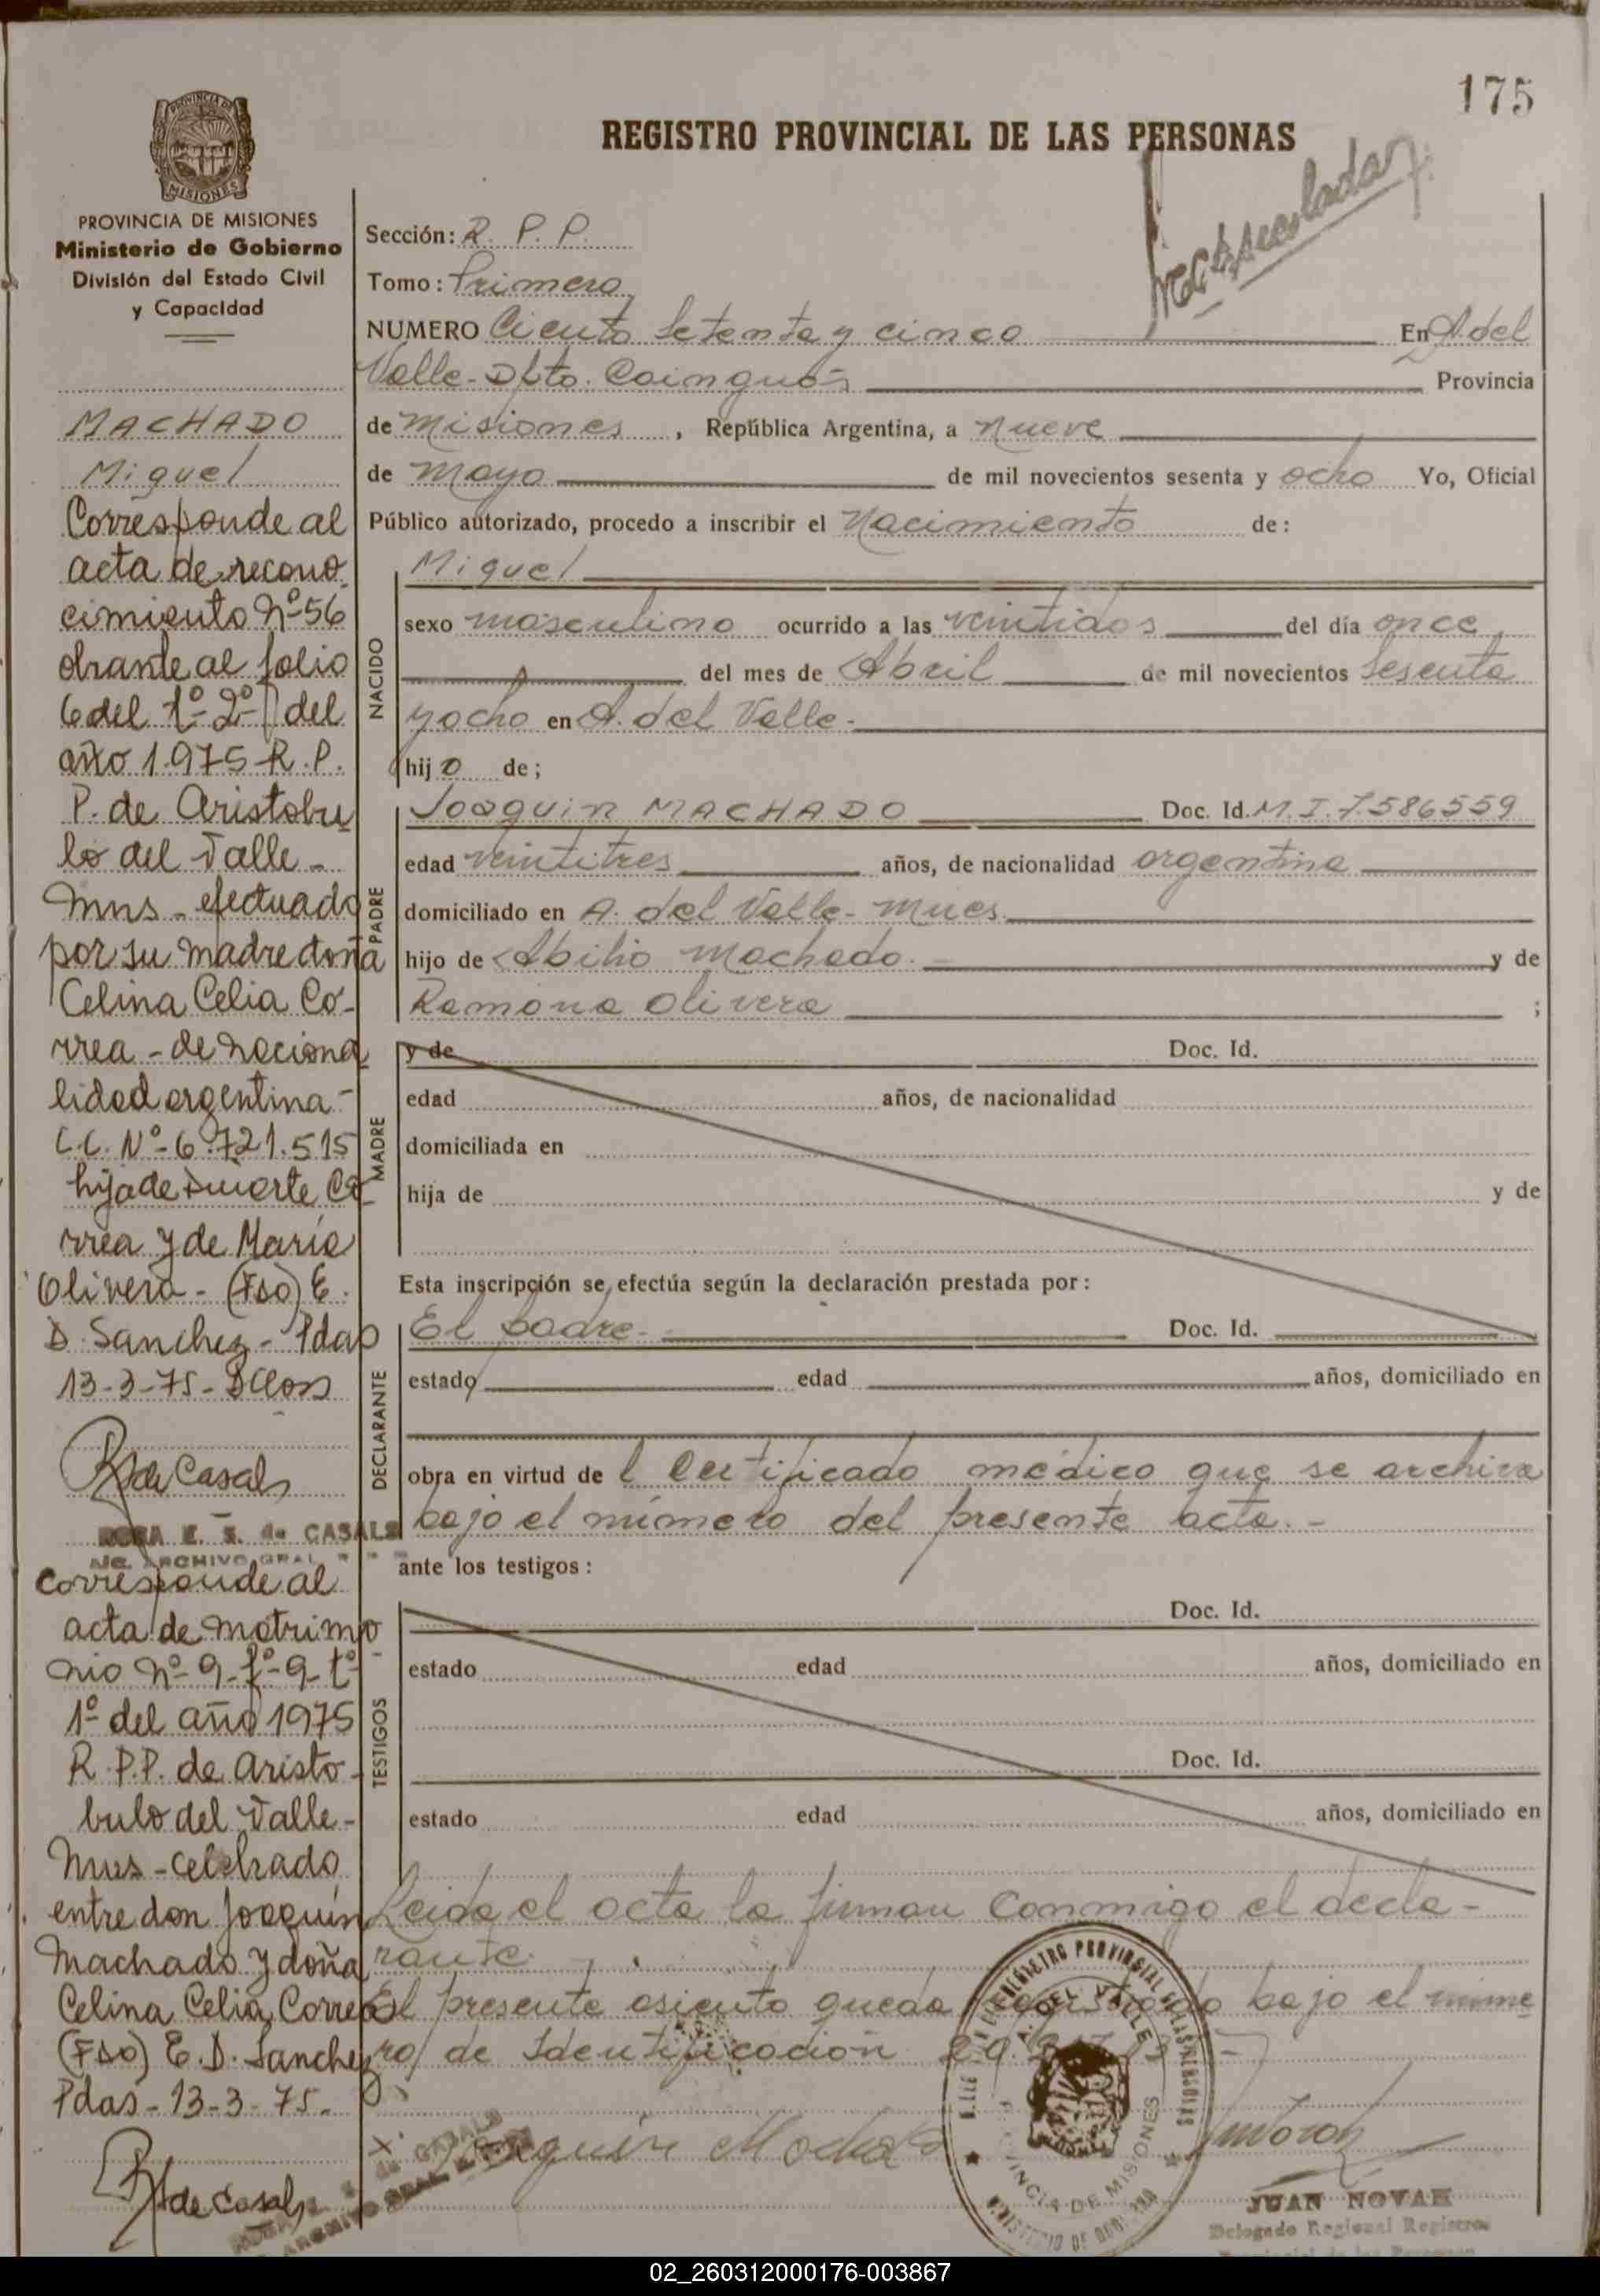 175
REGISTRO PROVINCIAL DE LAS PERSONAS
PROVINCIA DE
MISIONES
PROVINCIA DE MISIONES
Ministerio de Gobierno
División del Estado Civil
y Capacidad
MACHADO
Miguel
Corresponde al
acta de recono
cimiento Nº 56
obrante al folio
6 del 1º 2º del
año 1.975 R. P.
P. de Aristobu
lo del Valle -
Mns - efectuado
por su madre doña
Celina Celia Co-
rrea - de naciona
lidad argentina -
C.C. Nº 6.721.515
hija de Duarte Co
rrea y de María
Olivera - (Fdo) E.
D. Sanchez - Pdas
13-3-75 -
R de Casals
ROSA E. S. de CASALS
ARCHIVO GRAL
Corresponde al
acta de matrimo
nio Nº 9 - fº 9 - tº
1º del año 1975
R. P. P. de Aristo-
bulo del Valle -
Mns - Celebrado
entre don Joaquín
Machado y doña
Celina Celia Correa
(Fdo) E. D. Sanchez
Pdas - 13-3-75.
R de Casals
Sección: R. P. P.
Tomo: Primero
NUMERO Ciento setenta y cinco En A. del
Valle - Dpto. Cainguás Provincia
de Misiones, República Argentina, a nueve
de mayo de mil novecientos sesenta y ocho Yo, Oficial
Público autorizado, procedo a inscribir el Nacimiento de:
NACIDO
Miguel
sexo masculino ocurrido a las veintidos del día once
del mes de Abril de mil novecientos sesenta
y ocho en A. del Valle.
hijo de;
PADRE
Joaquin MACHADO Doc. Id. M.I. 7.586559
edad veintitres años, de nacionalidad argentina
domiciliado en A. del Valle -
hijo de Abilio Machado. y de
Ramona Olivera ;
MADRE
y de Doc. Id.
edad años, de nacionalidad
domiciliada en
hija de y de
Esta inscripción se efectúa según la declaración prestada por:
DECLARANTE
El padre. Doc. Id.
estado edad años, domiciliado en
obra en virtud del Certificado médico que se archiva
bajo el número del presente acta. -
ante los testigos:
TESTIGOS
Doc. Id.
estado edad años, domiciliado en
Doc. Id.
estado edad años, domiciliado en
Leida el acta la firman conmigo el decla-
rante.
El presente asiento queda registrado bajo el núme
ro de Identificación
Joaquin Machado
A. DEL VALLE
PROVINCIA DE MISIONES
JUAN NOVAK
Delegado Regional Registro
02_260312000176-003867